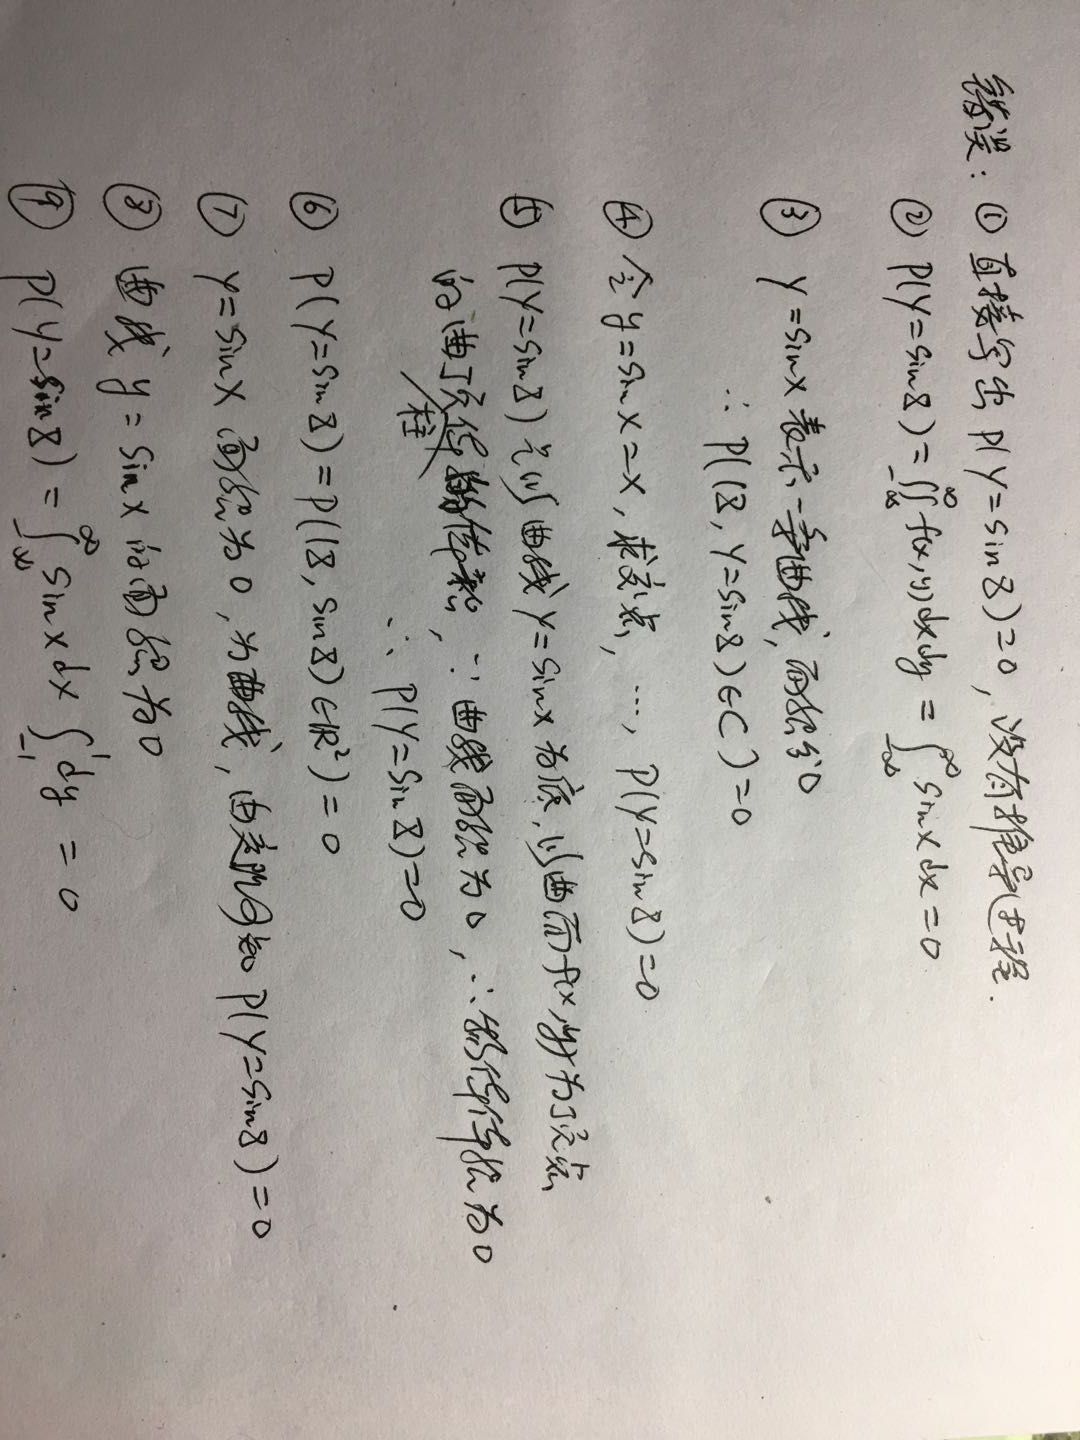 错误: ① 直接写出 P(Y=sin8)=0, 没有推导过程.
② P(Y=sin8)=∬_{-∞}^{∞} f(x,y)dxdy = ∫_{-∞}^{∞} sinxdx=0
③ Y=sinX 表示一条曲线, 面积为0
∴ P((8, Y=sin8)∈C)=0
④ 令 y=sinx=x, 求交点, …, P(Y=sin8)=0
⑤ P(Y=sin8) 是以曲线 Y=sinX 为底, 以曲面f(x,y)为顶点
的曲顶柱体的体积, ∵ 曲线面积为0, ∴ 体积为0
∴ P(Y=sin8)=0
⑥ P(Y=sin8)=P((8, sin8)∈R²)=0
⑦ Y=sinX 面积为0, 为曲线, 由 知 P(Y=sin8)=0
⑧ 曲线 y=sinx 的面积为0
⑨ P(Y=sin8) = ∫_{∞}^{∞} sinxdx ∫_{-1}^{1} dy = 0